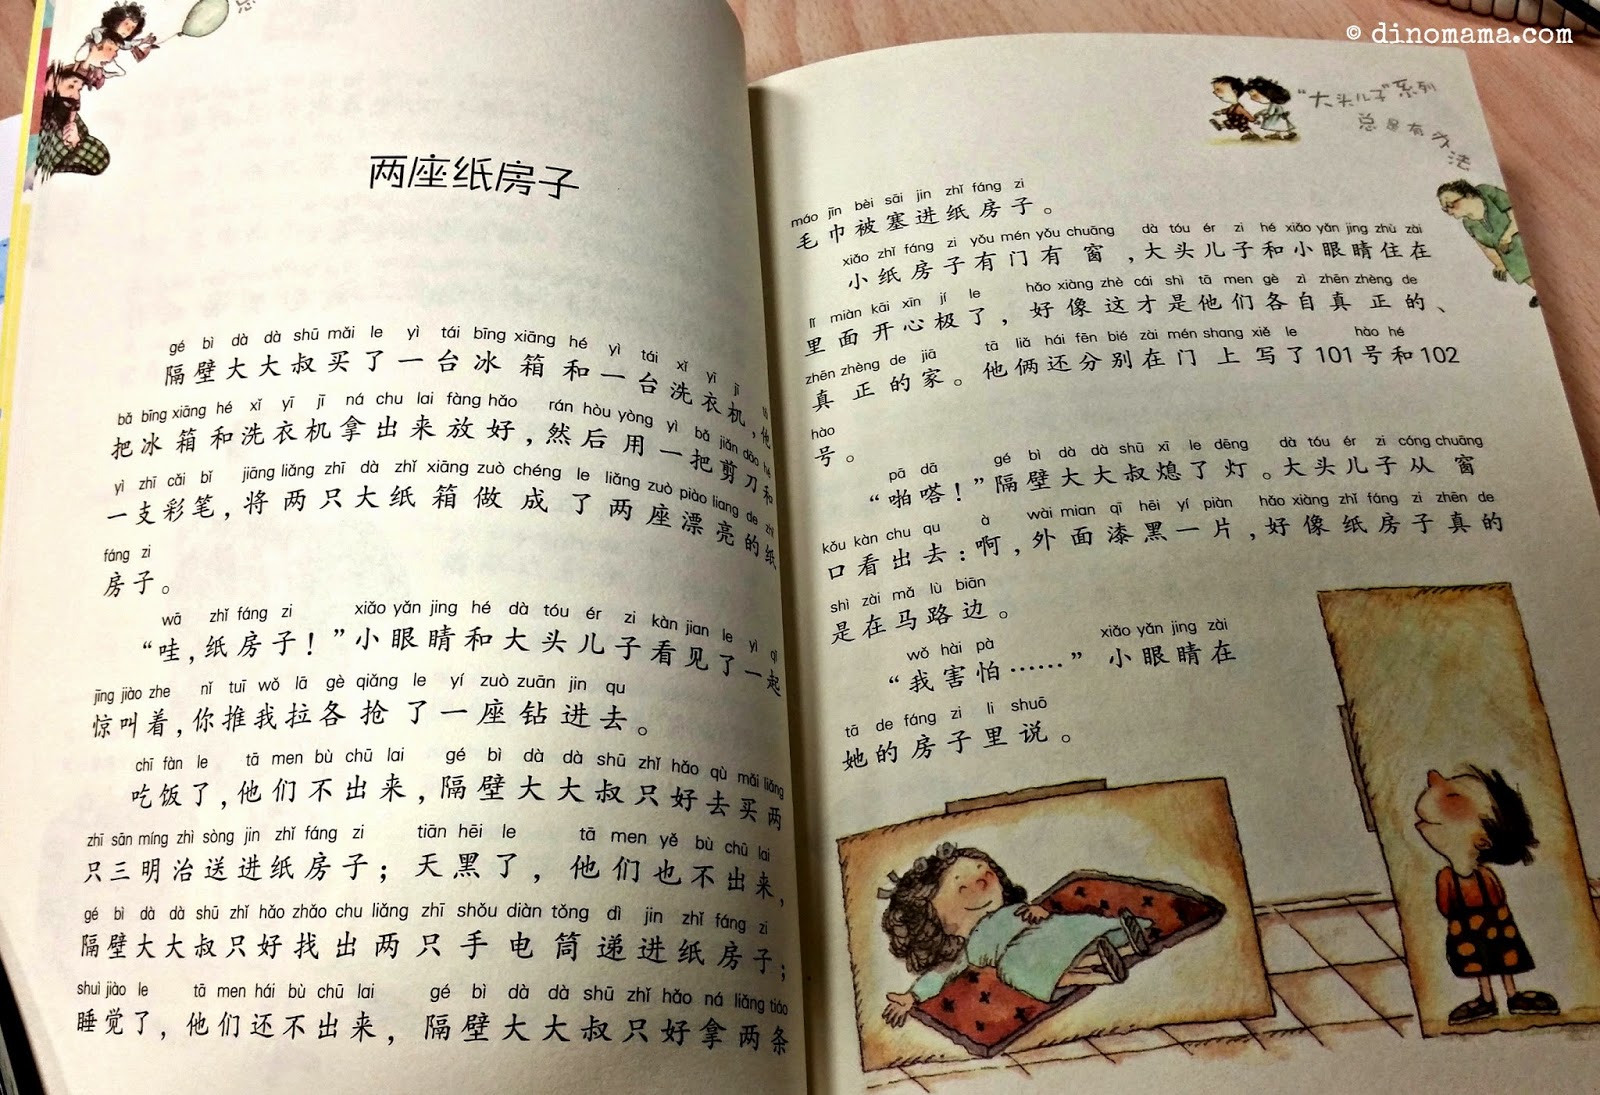 © dinomama.com
总
两座纸房子
gé bì dà dà shū mǎi le yì tái bīng xiāng hé yì tái xǐ yī jī tā
隔壁大大叔买了一台冰箱和一台洗衣机，他
bǎ bīng xiāng hé xǐ yī jī ná chu lai fàng hǎo rán hòu yòng yì bǎ jiǎn dāo hé
把冰箱和洗衣机拿出来放好，然后用一把剪刀和
yì zhī cǎi bǐ jiāng liǎng zhī dà zhǐ xiāng zuò chéng le liǎng zuò piào liang de zhǐ
一支彩笔，将两只大纸箱做成了两座漂亮的纸
fáng zi
房子。
wā zhǐ fáng zi xiǎo yǎn jing hé dà tóu ér zi kàn jian le yì qǐ
“哇，纸房子！”小眼睛和大头儿子看见了一起
jīng jiào zhe nǐ tuī wǒ lā gè qiǎng le yí zuò zuān jin qu
惊叫着，你推我拉各抢了一座钻进去。
chī fàn le tā men bù chū lai gé bì dà dà shū zhǐ hǎo qù mǎi liǎng
吃饭了，他们不出来，隔壁大大叔只好去买两
zhī sān míng zhì sòng jin zhǐ fáng zi tiān hēi le tā men yě bù chū lai
只三明治送进纸房子；天黑了，他们也不出来，
gé bì dà dà shū zhǐ hǎo zhǎo chu liǎng zhī shǒu diàn tǒng dì jin zhǐ fáng zi
隔壁大大叔只好找出两只手电筒递进纸房子；
shuì jiào le tā men hái bù chū lai gé bì dà dà shū zhǐ hǎo ná liǎng tiáo
睡觉了，他们还不出来，隔壁大大叔只好拿两条
“大头儿子”系列
总是有办法
máo jīn bèi sāi jin zhǐ fáng zi
毛巾被塞进纸房子。
xiǎo zhǐ fáng zi yǒu mén yǒu chuāng dà tóu ér zi hé xiǎo yǎn jing zhù zài
小纸房子有门有窗，大头儿子和小眼睛住在
lǐ miàn kāi xīn jí le hǎo xiàng zhè cái shì tā men gè zì zhēn zhèng de
里面开心极了，好像这才是他们各自真正的、
zhēn zhèng de jiā tā liǎ hái fēn bié zài mén shang xiě le hào hé
真正的家。他俩还分别在门上写了101号和102
hào
号。
pā dā gé bì dà dà shū xī le dēng dà tóu ér zi cóng chuāng
“啪嗒！”隔壁大大叔熄了灯。大头儿子从窗
kǒu kàn chu qu à wài mian qī hēi yí piàn hǎo xiàng zhǐ fáng zi zhēn de
口看出去：啊，外面漆黑一片，好像纸房子真的
shì zài mǎ lù biān
是在马路边。
wǒ hài pà xiǎo yǎn jing zài
“我害怕……”小眼睛在
tā de fáng zi li shuō
她的房子里说。